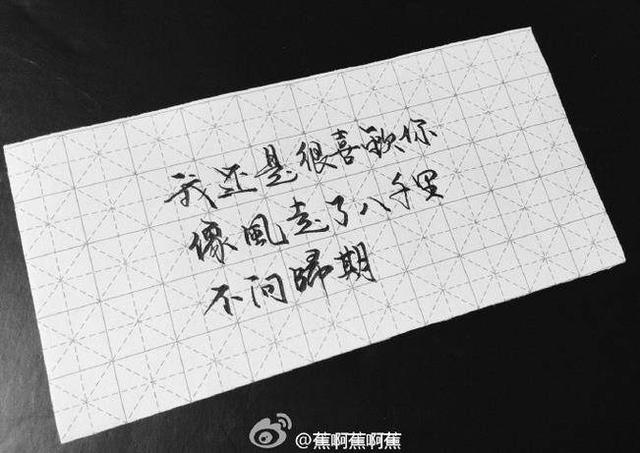 我还是很喜歡你
像風走了八千里
不问歸期
@蕉啊蕉啊蕉